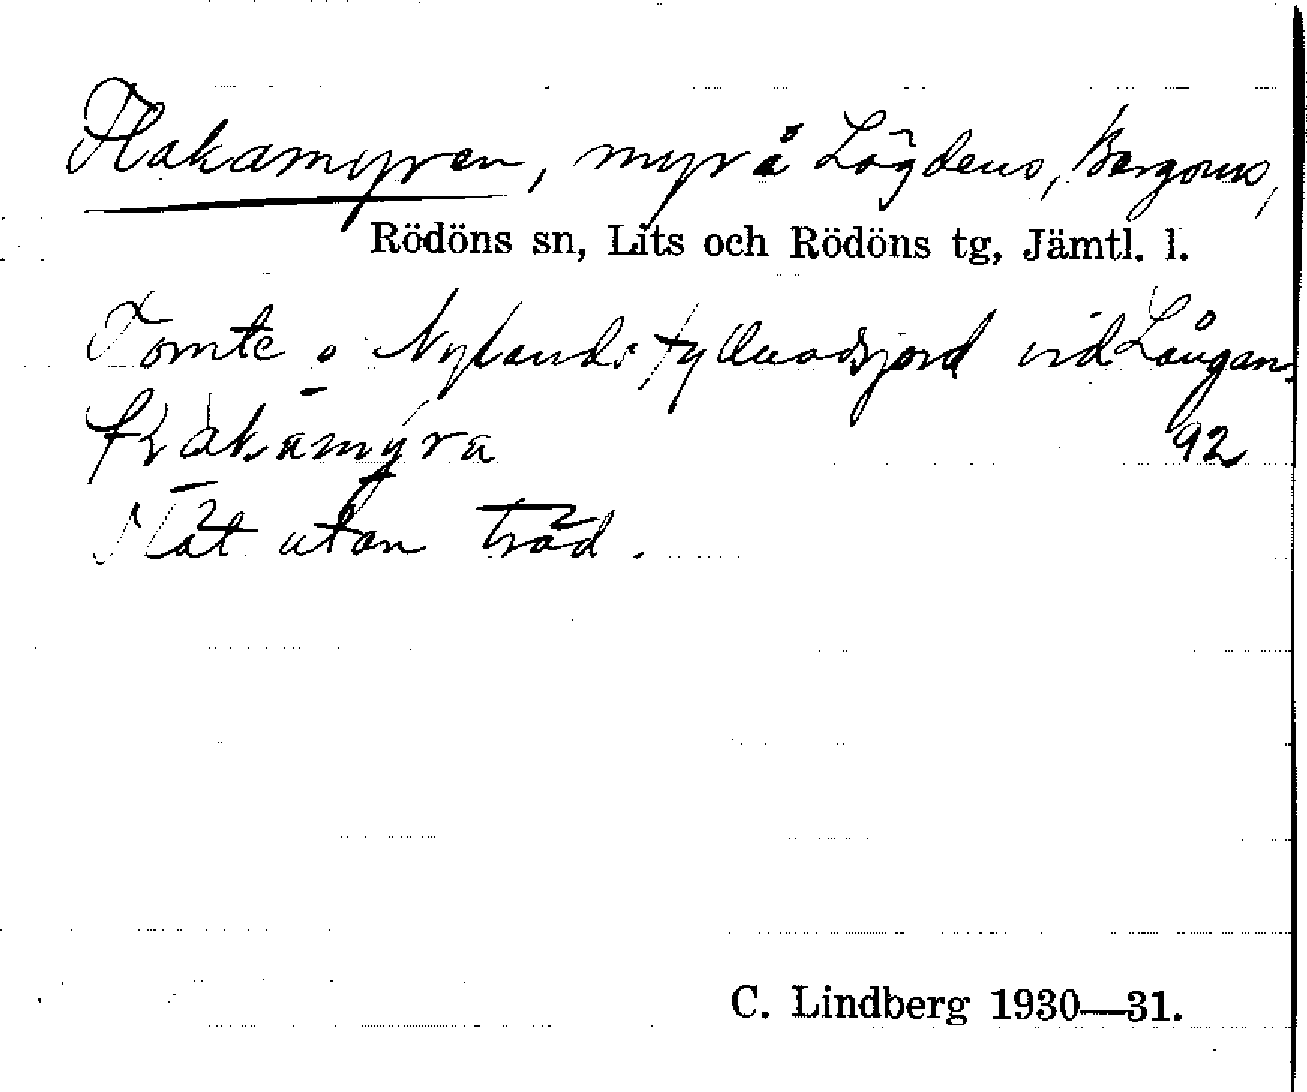 Flakamyren, myr å Lögdens, Bergoms,
Rödöns sn, Lits och Rödöns tg, Jämtl. l.
Tomte o Nylands fyllnadsjord vid Långan.
flakamyra 92
Slät utan träd.
C. Lindberg 1930—31.